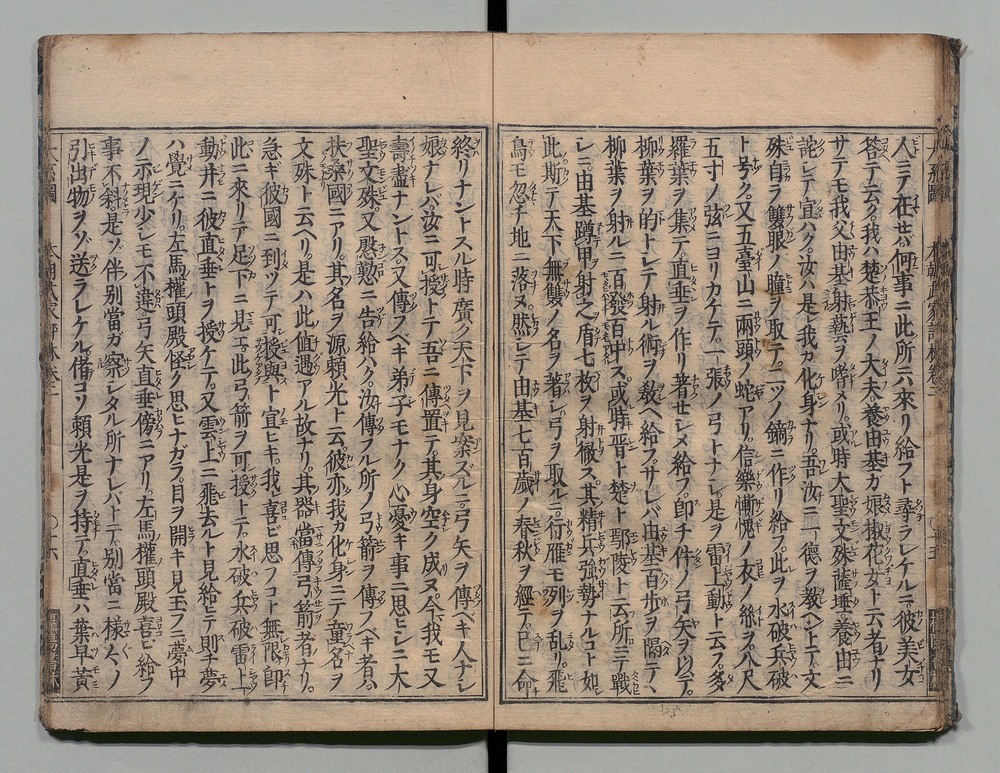 人ニテ在セバ何事ニ此所ニ六來リ給フト尋ヲレケルニ彼美女
答テ云ク我ハ楚恭王ノ大夫養由基ガ娘椒花女ト云者ナリ
サテモ我父由基射藝ヲ嗜メリ或時大聖文殊薩埵養由ニ
詫シテ宣ハク汝ハ是レ我カ化身ナリ吾汝ニ一德ヲ教ヘントテ文
殊自ラ雙眼ノ瞳ヲ取テ二ツノ鏑ニ作リ給フ此ヲ水破兵破
ト号ク又五臺山ニ兩頭ノ蛇アリ信樂慚愧ノ衣ノ絲ヲ八尺
五寸ノ弦ニヨリカケテ一張ノ弓トナシ是ヲ雷上動ト云フ多
羅葉ヲ集テ直垂ヲ作リ著セシメ給フ即チ件ノ弓矢ヲ以テ
柳葉ヲ的トシテ射ル術ヲ敎ヘ給フサレバ由基百歩ヲ隔テヽ
柳葉ヲ射ルニ百發百中ス或時晋ト楚ト鄢陵ト云所ニテ戰
シニ由基蹲甲射之盾七枚ヲ射徹ス其精兵強勢ナルコト如
此斯テ天下無雙ノ名ヲ著シ弓ヲ取ルニ行雁モ列ヲ亂リ飛
鳥モ忽チ地ニ落ヌ然シテ由基七百歳ノ春秋ヲ經テ已ニ命
終リナントスル時廣ク天下ヲ見察ズルニ弓矢ヲ傳ベキ人ナシ
娘ナレバ汝ニ可授トテ吾ニ傳置テ其身空ク成ヌ今我モ又
壽盡ナントス又傳フベキ弟子モナク心憂キ事ニ思ヒシニ大
聖文殊又慇懃ニ告給ハク汝傳フル所ノ弓箭ヲ傳フベキ者ハ
扶桑國ニアリ其名ヲ源頼光ト云彼亦我カ化身ニテ童名ヲ
文殊ト云ヘリ是ハ此値遇アル故ナリ其器當傳弓箭者ナリ
急ギ彼國ニ到ツテ可授與ト宣ヒキ我喜ビ思フコト無限即
此ニ來リテ足下ニ見ユ此弓箭ヲ可授トテ水破兵破雷上
動并ニ彼直垂トヲ授ケテ又雲上ニ飛去ルト見給ヒテ則チ夢
ハ覺ニケリ左馬權頭殿怪ク思ヒナガラ目ヲ開キ見玉フニ夢中
ノ示現少シモ不違弓矢直垂傍ニアリ左馬權頭殿喜ビ給フ
事不斜是ゾ伴別當ガ察シタル所ナレバトテ別當ニ樣々ノ
引出物ヲゾ送ラレケル偖コソ頼光是ヲ持テ直垂ハ葉早黃